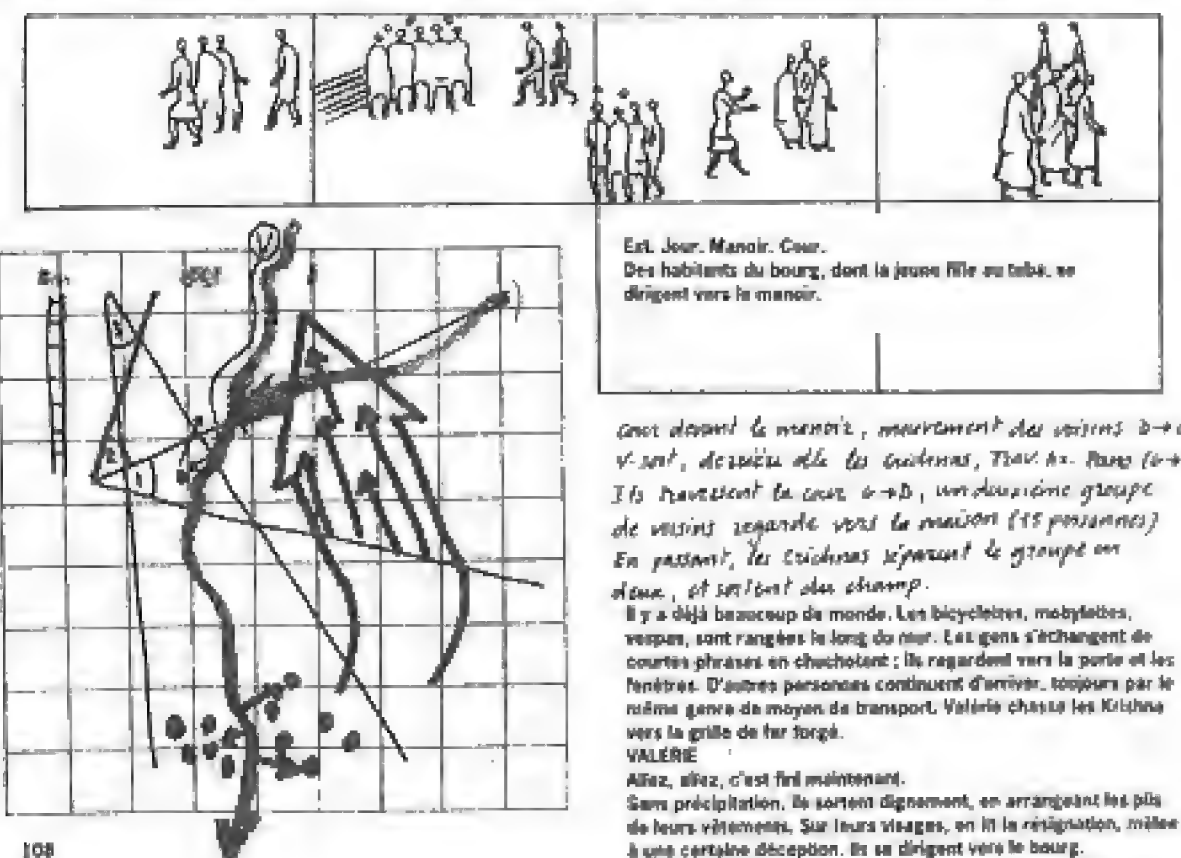 Ext. Jour. Manoir. Cour.
Des habitants du bourg, dont la jeune fille au tuba, se
dirigent vers le manoir.
Cour devant le manoir, mouvement des voisins D→
V. sort, derrière elle les Crichnas, Trav. Ar. Pano
Ils traversent la cour G→D, un deuxième groupe
de voisins regarde vers la maison (15 personnes)
En passant, les Crichnas séparent le groupe en
deux, et sortent du champ.
Il y a déjà beaucoup de monde. Les bicyclettes, mobylettes,
vespas, sont rangées le long du mur. Les gens s'échangent de
courtes phrases en chuchotant ; ils regardent vers la porte et les
fenêtres. D'autres personnes continuent d'arriver, toujours par le
même genre de moyen de transport. Valérie chasse les Krishna
vers la grille de fer forgé.
VALÉRIE
Allez, allez, c'est fini maintenant.
Sans précipitation, ils sortent dignement, en arrangeant les plis
de leurs vêtements. Sur leurs visages, on lit la résignation, mêlée
à une certaine déception. Ils se dirigent vers le bourg.
V
3
2
1
108